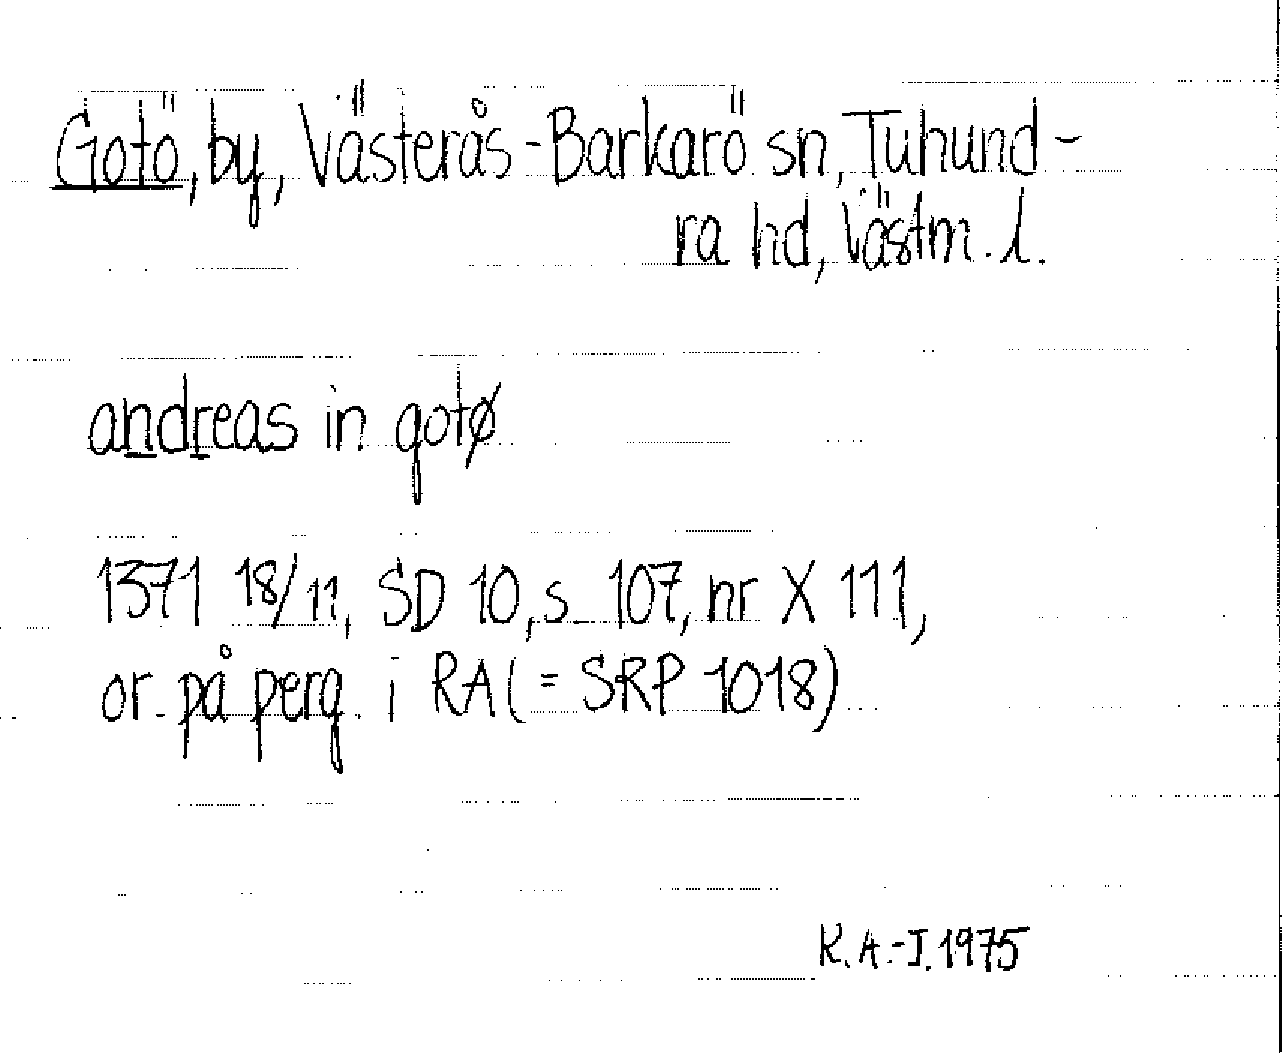 Gotö, by, Västerås-Barkarö sn, Tuhund-
ra hd, Västm. l.
andreas in gotø
1371 18/11, SD 10, s. 107, nr X 111,
or. på perg. i RA (= SRP 1018)
K. A.-J. 1975